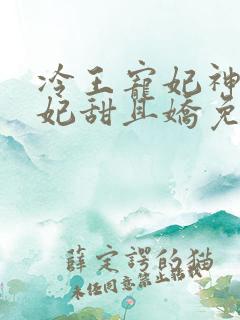 冷王寵妃神
妃甜且嬌免
薛定諤的貓
未經同意禁止轉載